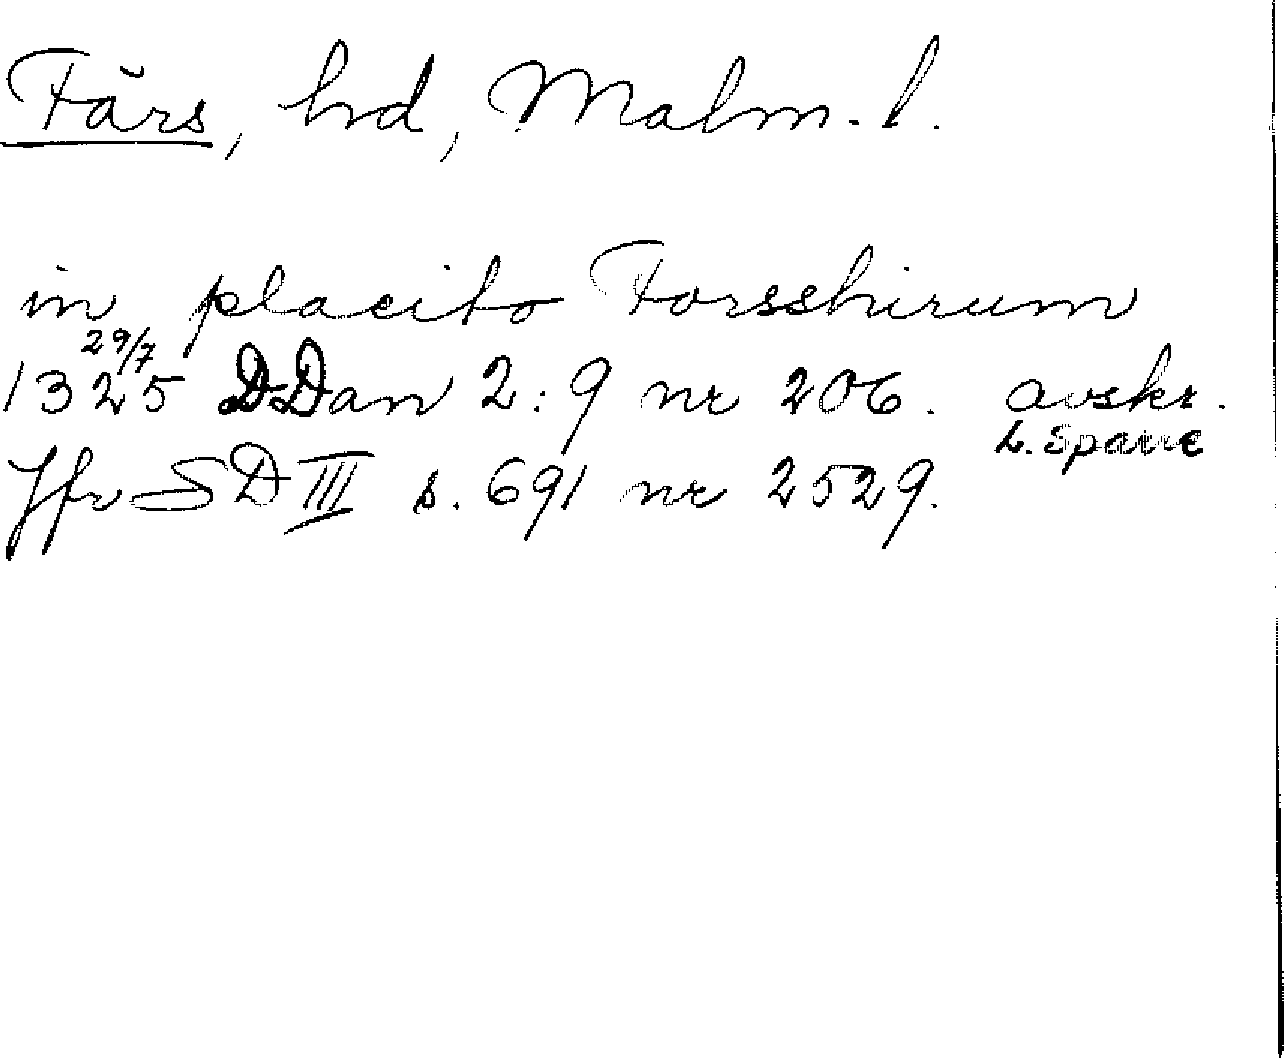 Färs, hd, Malm. l.
in placito Forsshirum
29/7
1325 DDan 2:9 nr 206. avskr.
L. Sparre
Jfr SD III s. 691 nr 2529.